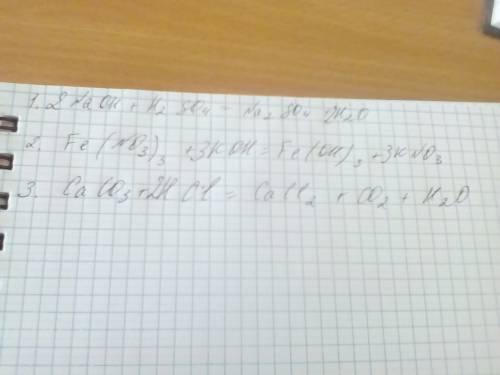 1. 2NaOH + H2SO4 = Na2SO4 2H2O
2. Fe(NO3)3 + 3KOH = Fe(OH)3 + 3KNO3
3. CaCO3 + 2HCl = CaCl2 + CO2 + H2O